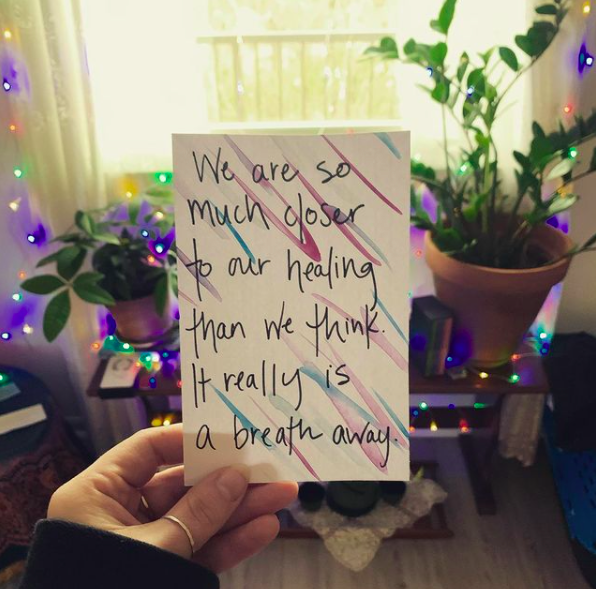 We are so
much closer
to our healing
than we think.
It really is
a breath away.